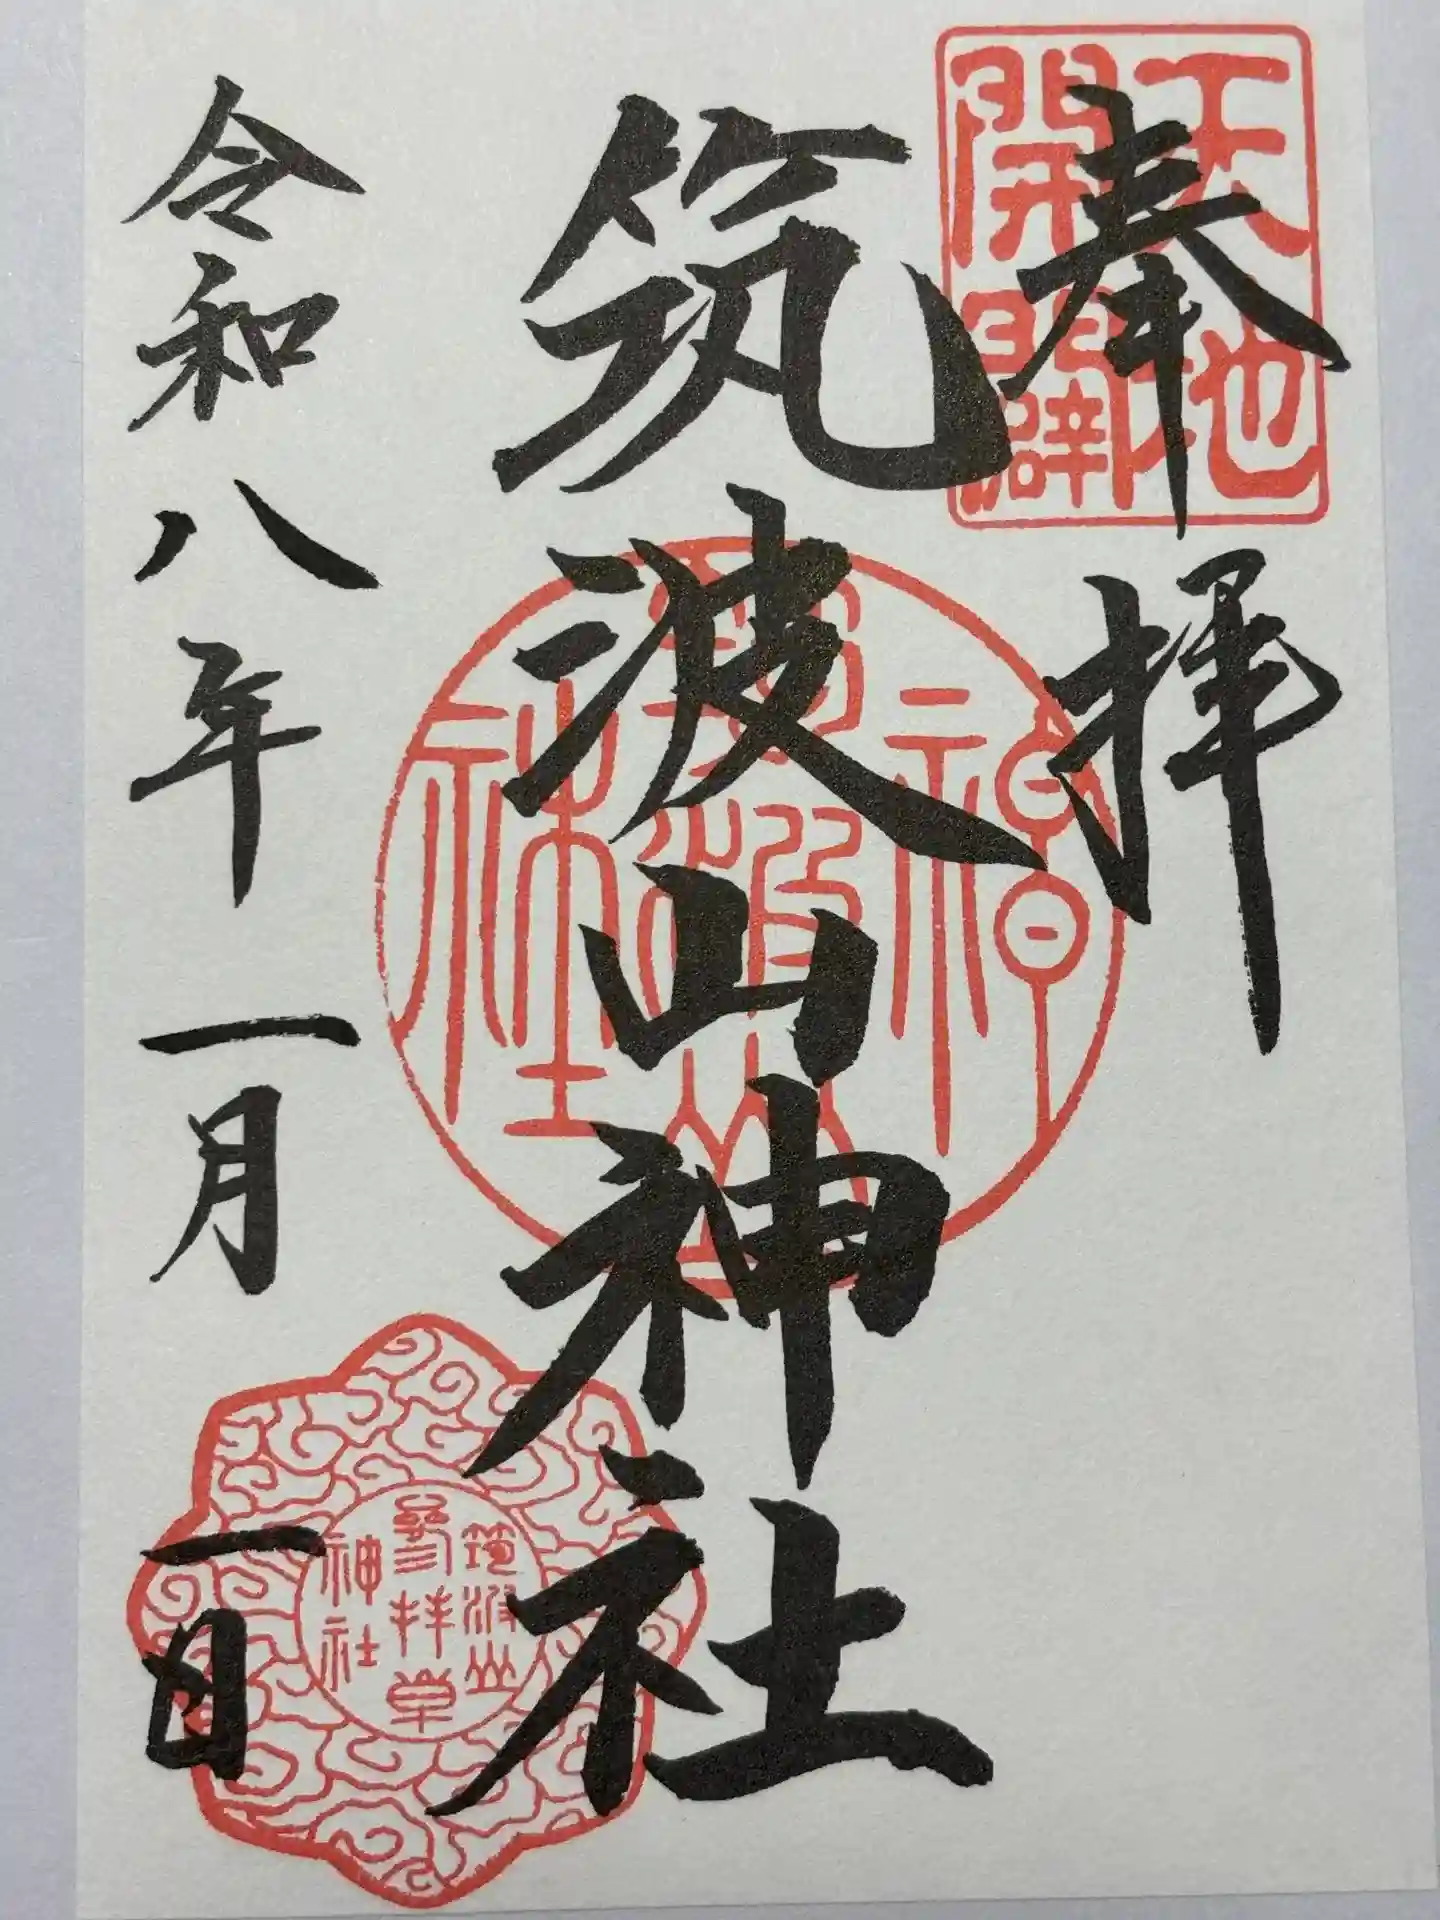 奉拝
天地
開闢
筑波山神社
筑波山
神社
令和八年一月一日
筑波山
参拝章
神社